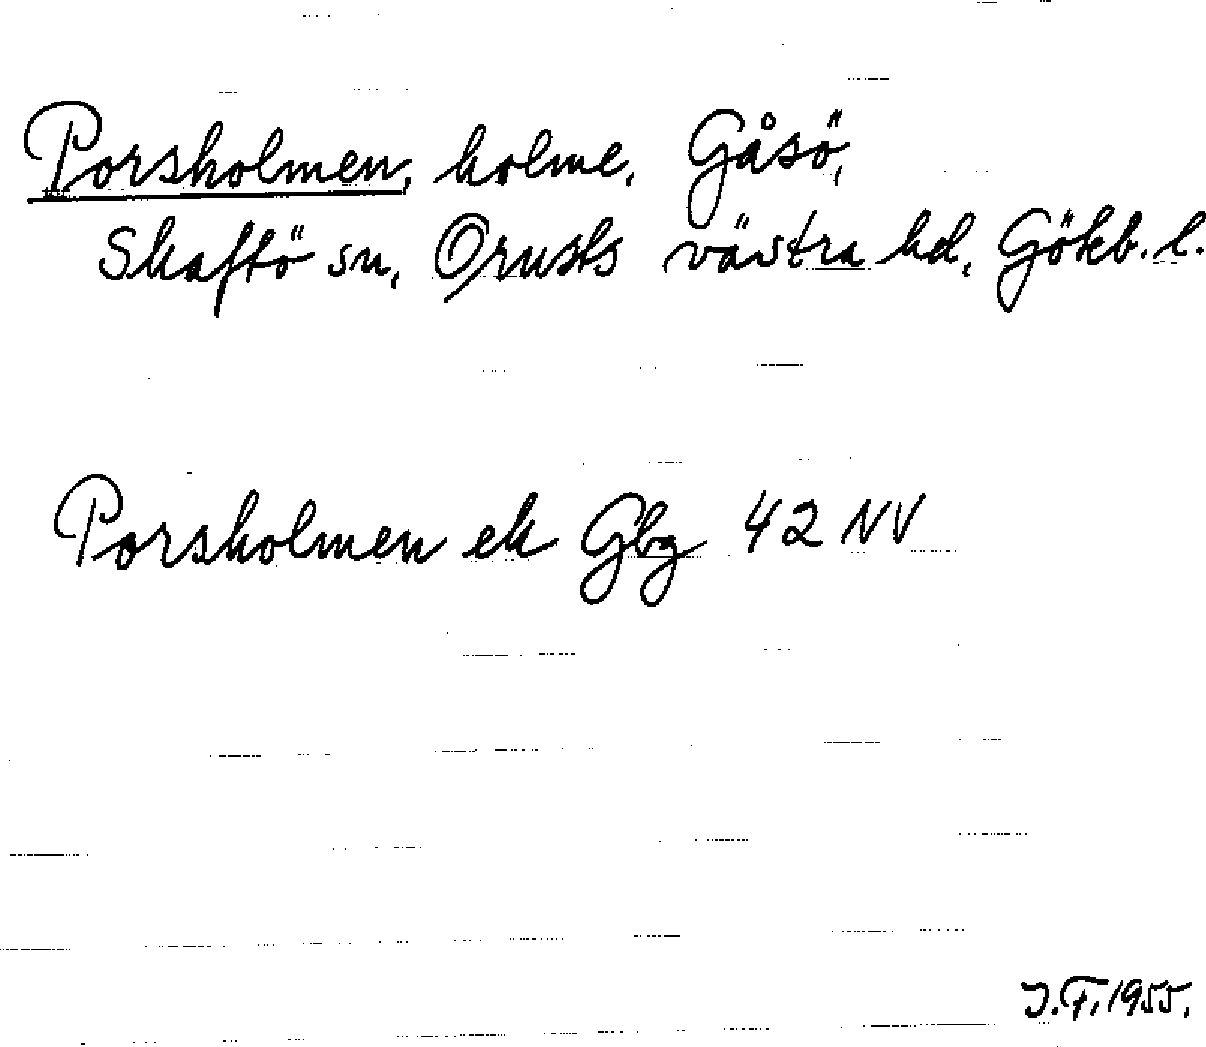 Porsholmen, holme, Gåsö,
Skaftö sn, Orusts västra hd, Gökb. l.
Porsholmen ek Gbg 42 NV
J.F. 1955.